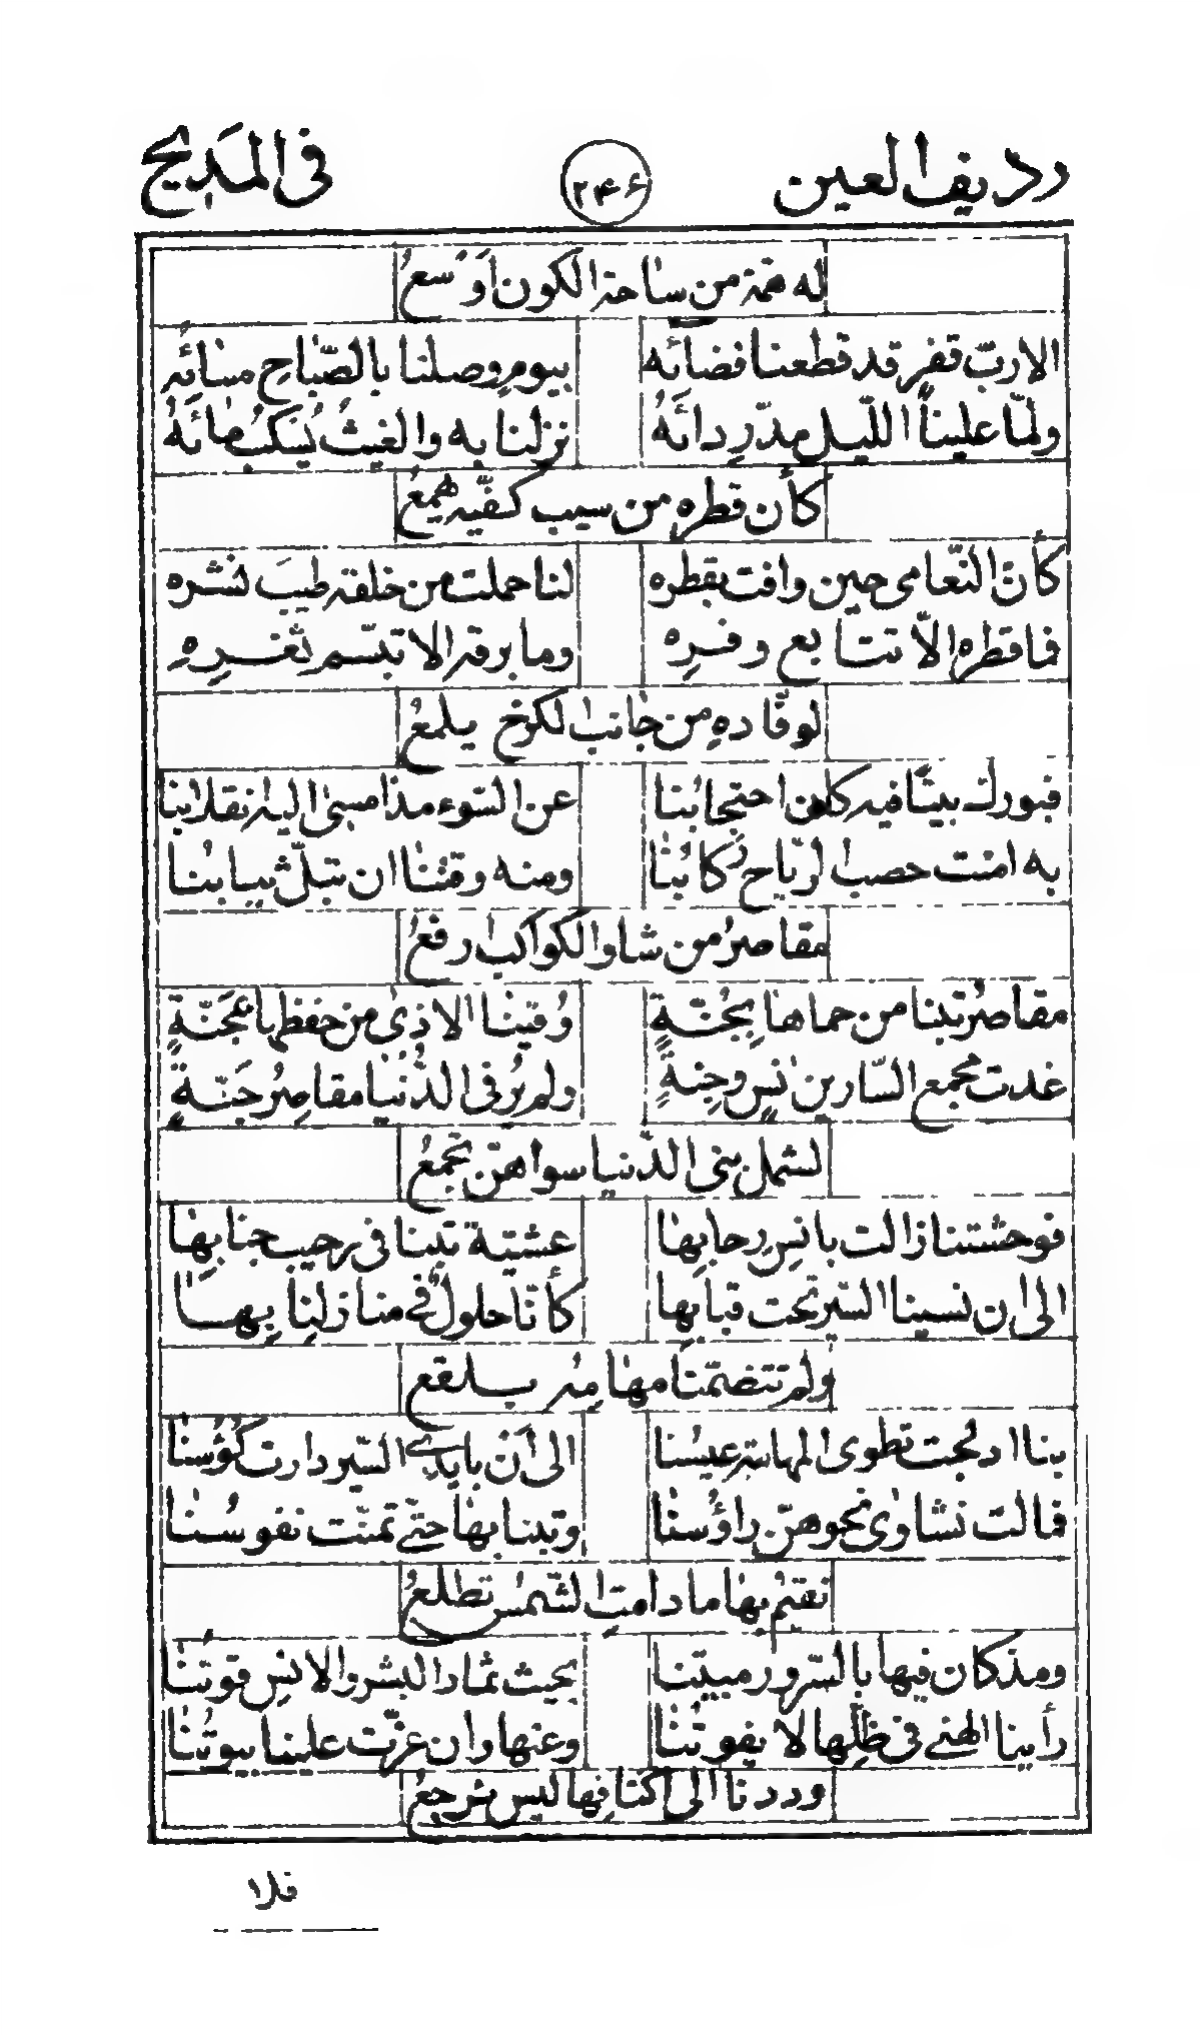 رديف العين ۲۴۶ فى المديح
له همة من ساحة الكون اوسعُ
الا ربّ قفر قد قطعنا فضائَه بيومٍ وصلنا بالصّباحِ مسائَه
ولمّا علينا اللّيل مدّ رِدائَهُ نزلنا به والغيثُ يَسكبُ مائَهُ
كأن قطره من سيب كفّيه يهمعُ
كأنّ النّعامى حين وافت بقطره لنا حملت من خلقه طيبَ نشره
فما قطره الّا تتابع وفرِه وما برقه الا تبسّم ثغرِهِ
لوفّادهِ من جانب الكرخ يلمعُ
فبورك بيتًا فيه كان احتجابُنا عن السّوء مذ امسىٰ اليه انقلابنا
به امنت حصب الرّياح ركابُنا ومنه وقتنا ان تبلّ ثيابنا
مقاصرُ من شاو الكواكب ارفعُ
مقاصرُ تبنا من حماها بِجُنّةٍ وُقينا الاذىٰ من حفظها بمجَنّةٍ
غدت مجمع السّارين انسٍ وجِنةٍ ولم يُر فى الدُّنيا مقاصِرُ جَنّةٍ
لشمل بنى الدّنيا سواهنّ تجمعُ
فوحشتنا زالت بانسِ رحابِها عشيّة تبنا فى رحيب جنابِها
الى ان نسينا السّير تحت قبابها كأنّا حلول فى منازلِنا بِها
ولم تتضمّنا مهامِه بلقع
بنا ادلجت تطوى المهامه عيسُنا الى أن بايدى السّير دارت كؤُسنا
فمالت نشاوىٰ نحوهنّ راؤُسنا وتبنا بها حتّى تمنّت نفوسُنا
نقيمُ بها ما دامت الشّمس تطلعُ
ومذ كان فيها بالسّرور مبيتنا بحيث ثمار البشر والانسِ قوتُنا
رأينا الهنى فى ظلّها لا يفوتُنا وعنها وان عزّت علينا بيوتُنا
وددنا الى اكنافِها ليس نرجعُ
فلا